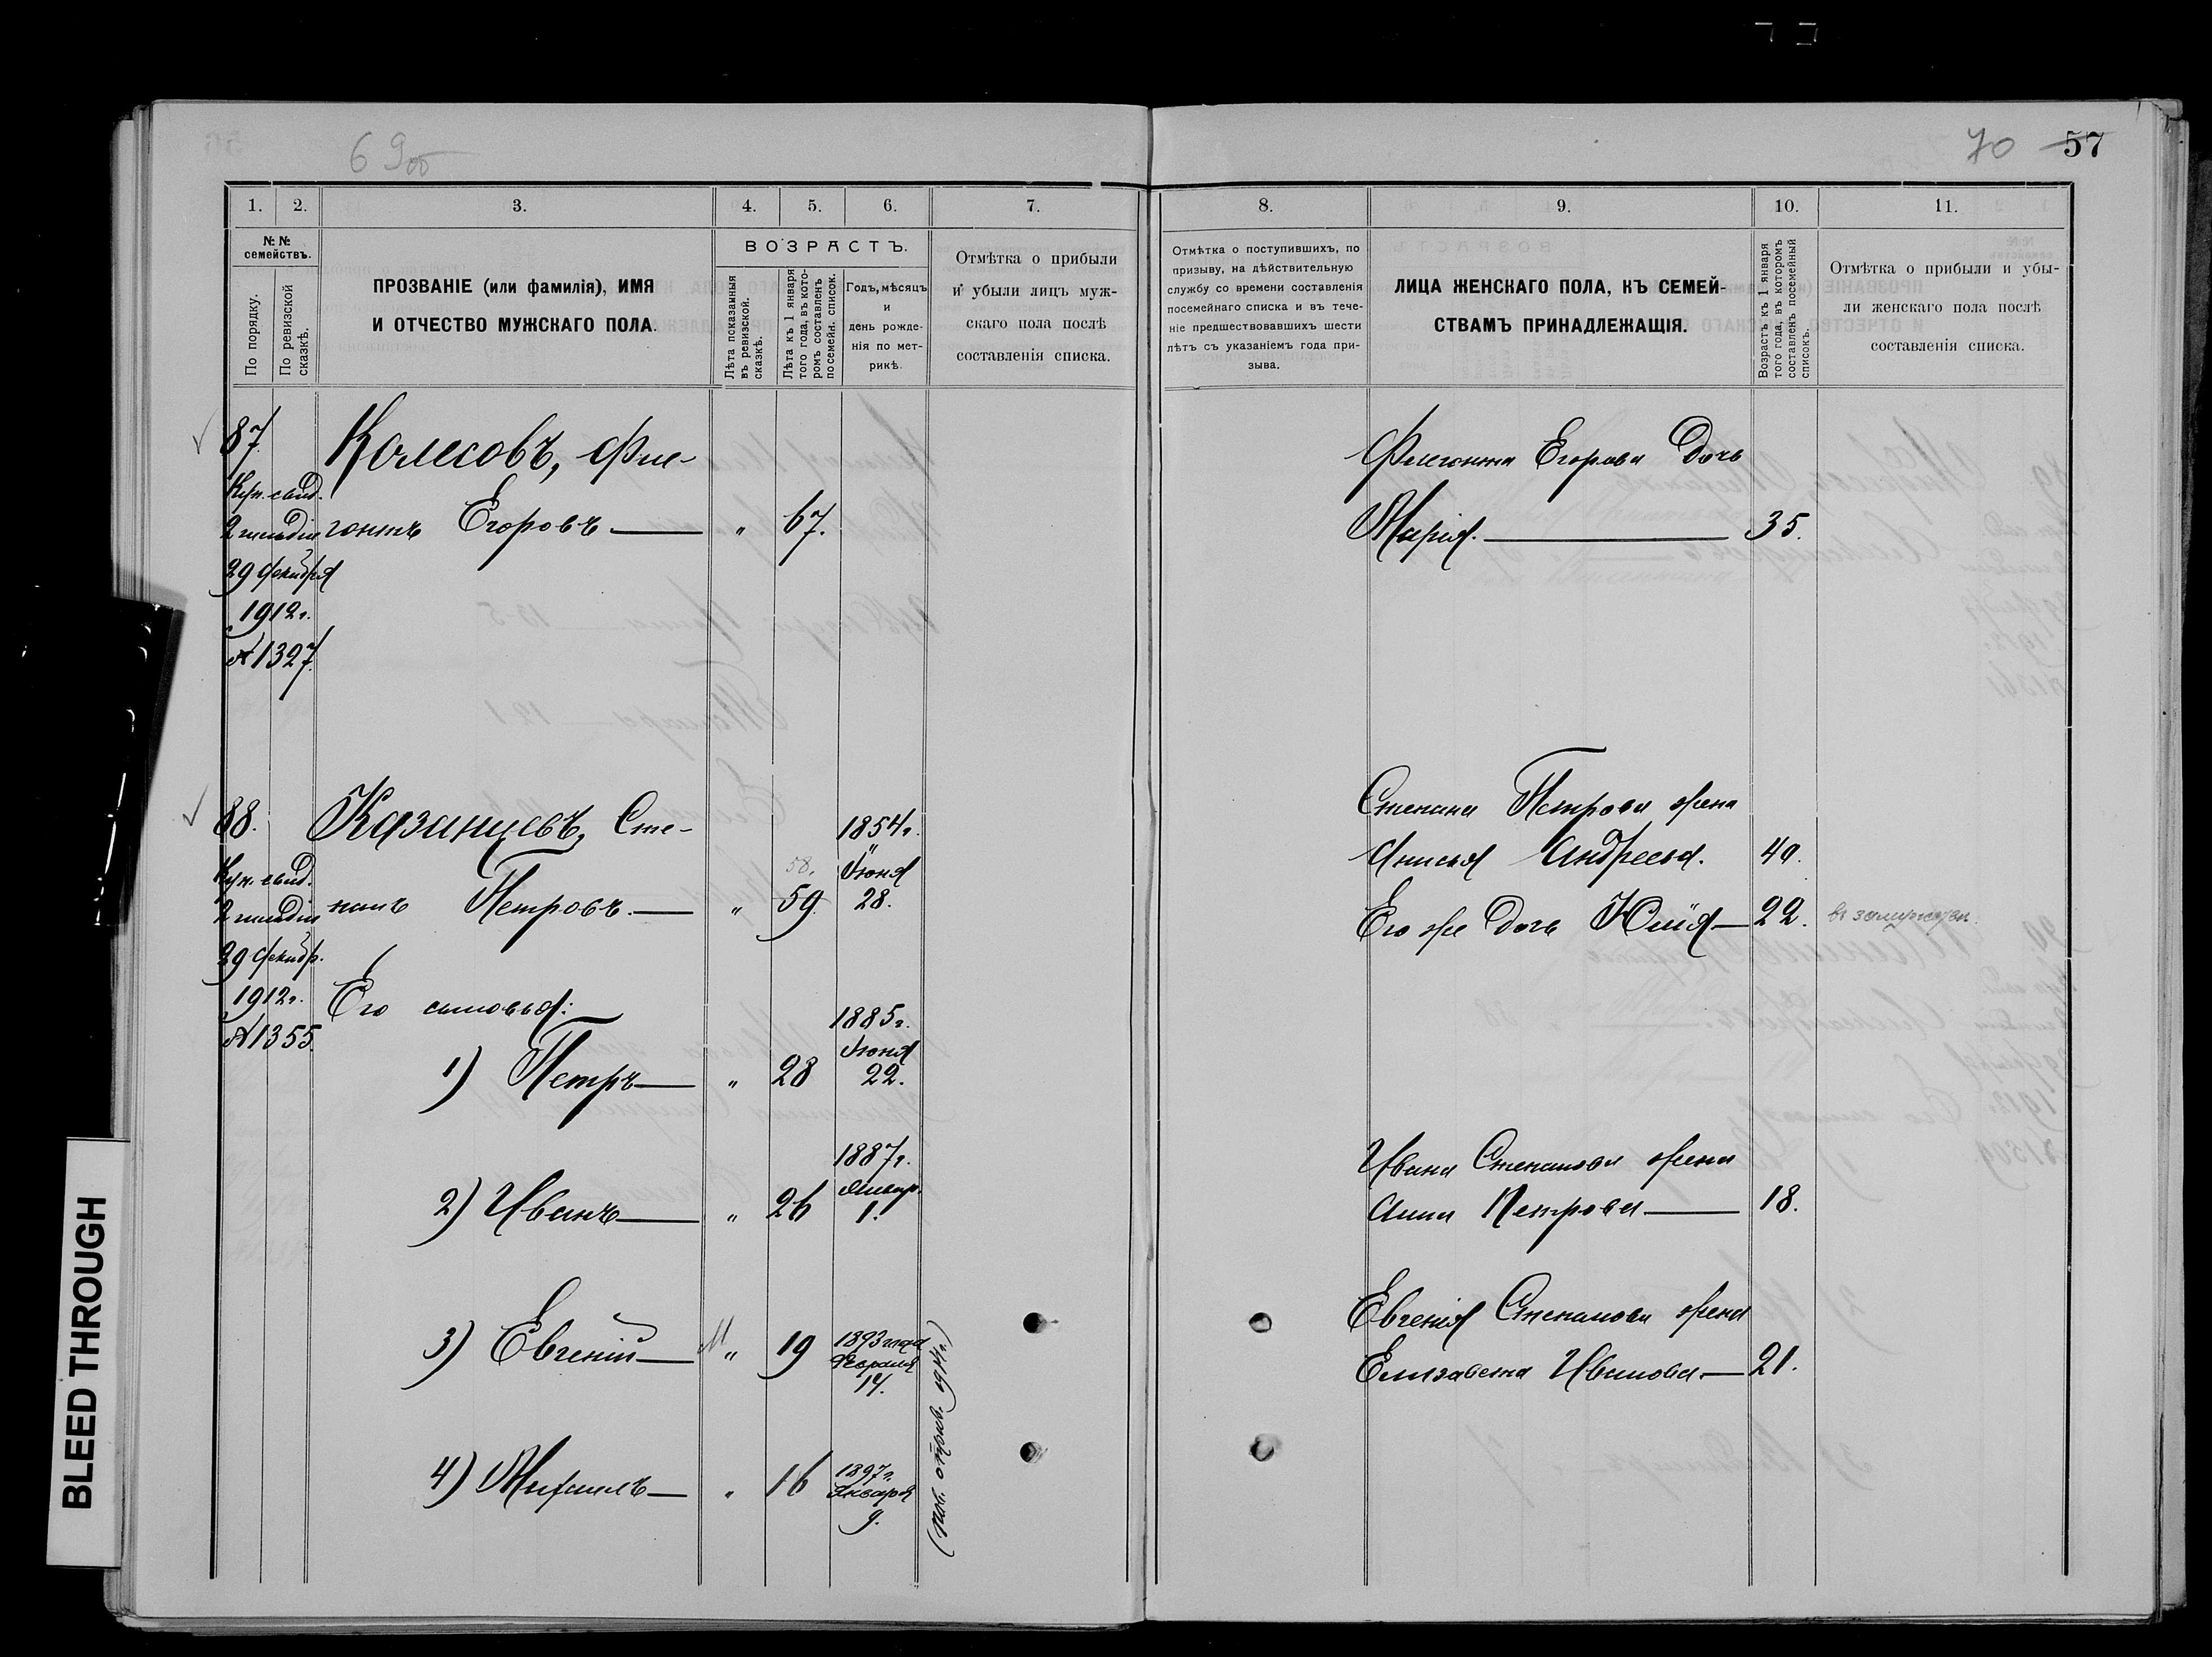 69об
70 57
1. 2. 3. 4. 5. 6. 7.
№№ семействъ.
По порядку.
По ревизской сказкѣ.
ПРОЗВАНІЕ (или фамилія), ИМЯ
И ОТЧЕСТВО МУЖСКАГО ПОЛА.
ВОЗРАСТЪ.
Лѣта показанныя въ ревизской сказкѣ.
Лѣта къ 1 января того года, въ которомъ составленъ посемейн. список.
Годъ, мѣсяцъ
и
день рожде-
нія по мет-
рикѣ.
Отмѣтка о прибыли
и убыли лицъ муж-
скаго пола послѣ
составленія списка.
87
Колесовъ, Фле-
Куп. свид.
2 гильдіи
гонтъ Егоровъ — " 67.
29 декабря
1912 г.
№ 1327.
88.
Казанцевъ, Сте-
1854 г.
Куп. свид.
58. Іюня
2 гильдіи
панъ Петровъ. — " 59. 28.
29 декабр.
1912 г.
Его сыновья:
№ 1355.
1885 г.
Іюня
1) Петръ — " 28 22.
1887 г.
Январ.
2) Иванъ — " 26 1.
3) Евгеній — " 19 1893 года
Февраля
14.
1897 г.
4) Михаилъ — " 16 Января
9.
1914 г.)
8. 9. 10. 11.
Отмѣтка о поступившихъ, по
призыву, на дѣйствительную
службу со времени составленія
посемейнаго списка и въ тече-
ніе предшествовавшихъ шести
лѣтъ съ указаніемъ года при-
зыва.
ЛИЦА ЖЕНСКАГО ПОЛА, КЪ СЕМЕЙ-
СТВАМЪ ПРИНАДЛЕЖАЩІЯ.
Возрастъ къ 1 января того года, въ которомъ составленъ посемейный списокъ.
Отмѣтка о прибыли и убы-
ли женскаго пола послѣ
составленія списка.
Флегонта Егорова дочь
Марія. — 35.
Степана Петрова жена
Анисья Андреева. 40.
Его же дочь Юлія — 22. въ замужестве.
Ивана Степанова жена
Анна Петрова — 18.
Евгенія Степанова жена
Елизавета Иванова. — 21.
BLEED THROUGH